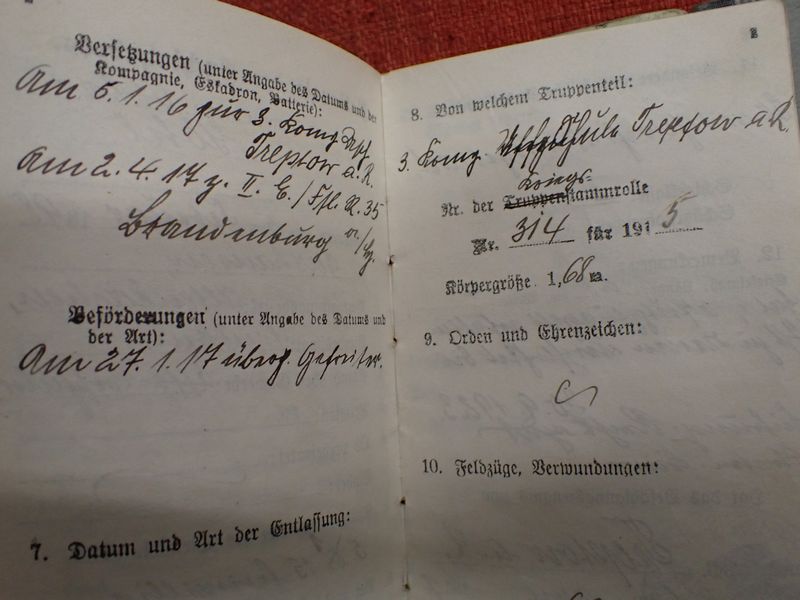 Versetzungen (unter Angabe des Datums und der
Kompagnie, Eskadron, Batterie):
Am 5.1.16 zur 3. Komp.
Treptow a.R.
Am 2.4.17 z. II. E./ R. 35
Brandenburg a/H.
Beförderungen (unter Angabe des Datums und
der Art):
Am 27.1.17 überz. Gefreiter.
7. Datum und Art der Entlassung:
8. Von welchem Truppenteil:
3. Komp. Treptow a.R.
Kriegs-
Nr. der Truppenstammrolle
Nr. 314 für 1915
Körpergröße 1,68 m.
9. Orden und Ehrenzeichen:
10. Feldzüge, Verwundungen: